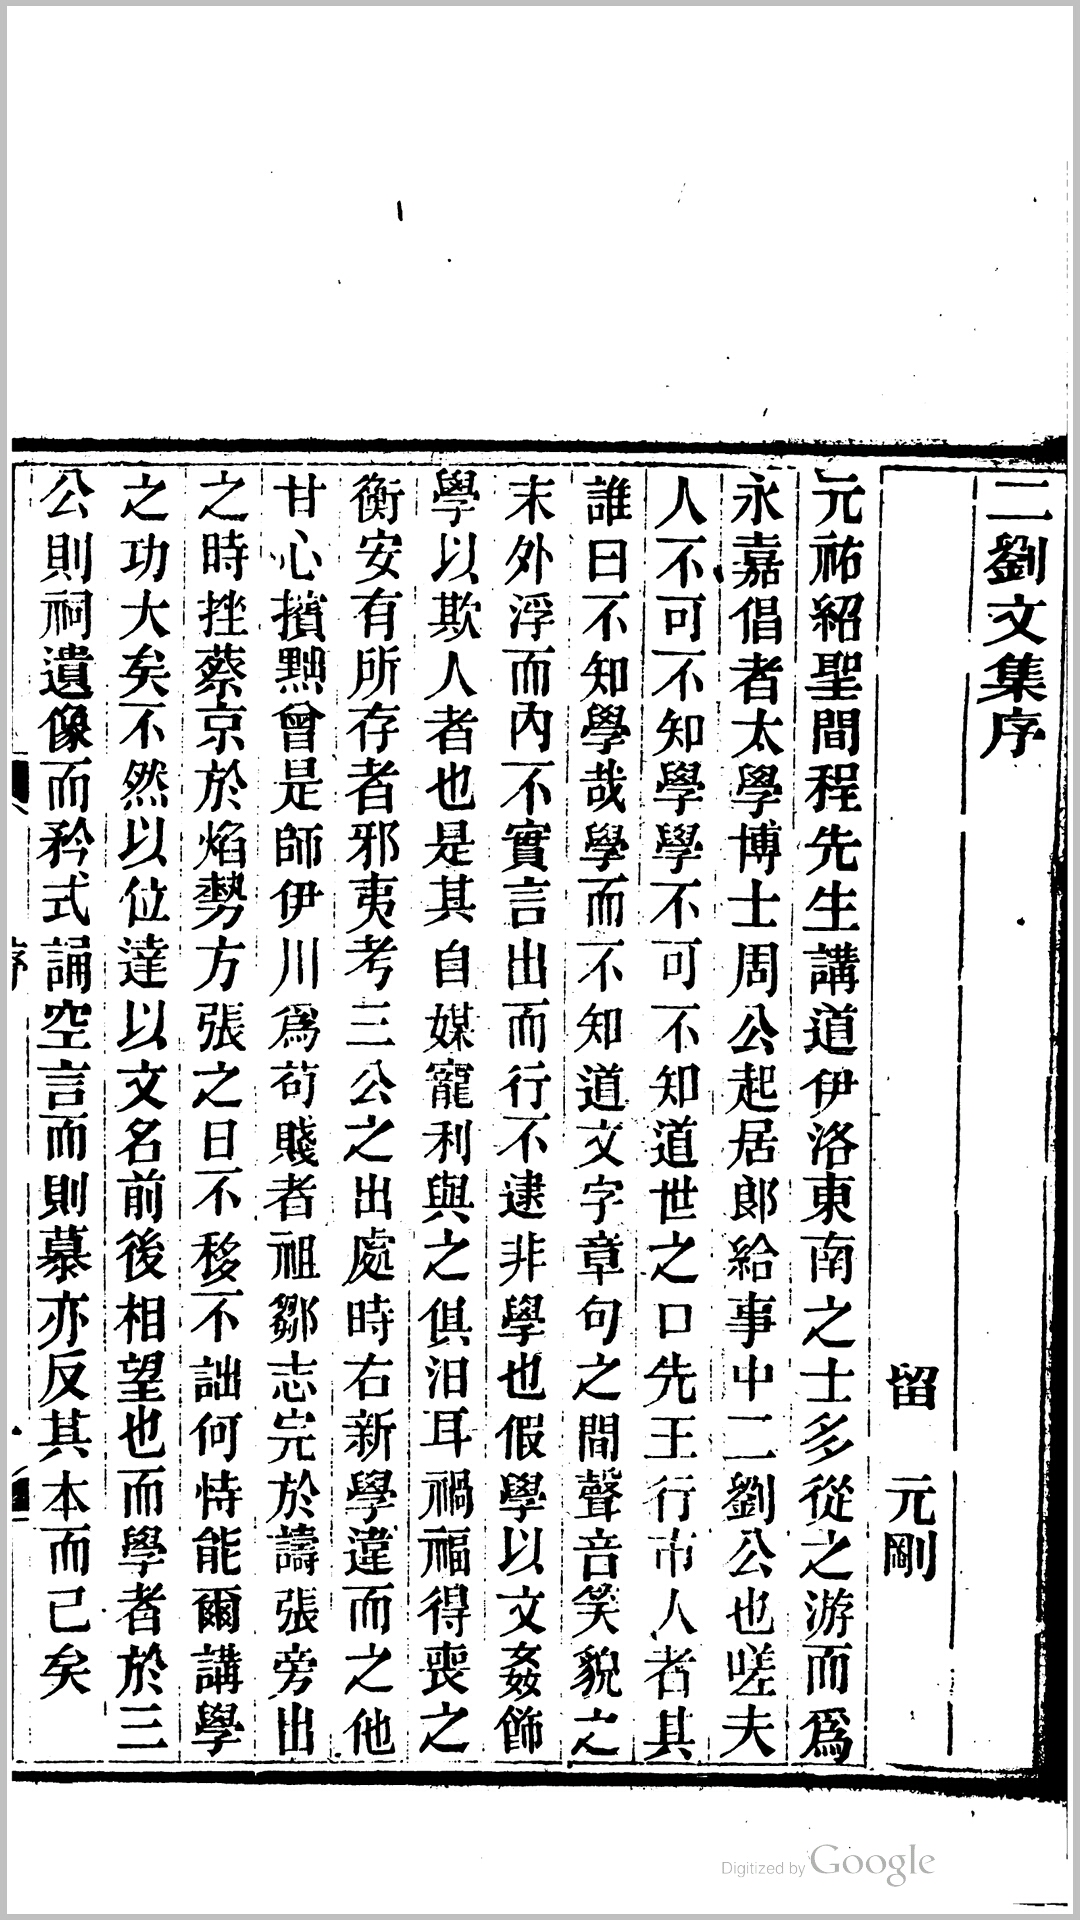 二劉文集序
留 元剛
元祐紹聖間程先生講道伊洛東南之士多從之游而爲
永嘉倡者太學博士周公起居郎給事中二劉公也嗟夫
人不可不知學學不可不知道世之口先王行市人者其
誰曰不知學哉學而不知道文字章句之間聲音笑貌之
末外浮而內不實言出而行不逮非學也假學以文姦飾
學以欺人者也是其自媒寵利與之俱汨耳禍福得喪之
衡安有所存者邪夷考三公之出處時右新學違而之他
甘心擯黜曾是師伊川爲苟賤者祖鄒志完於譸張旁出
之時挫蔡京於焰勢方張之日不移不詘何恃能爾講學
之功大矣不然以位達以文名前後相望也而學者於三
公則祠遺像而矜式誦空言而則慕亦反其本而已矣
序
Digitized by Google